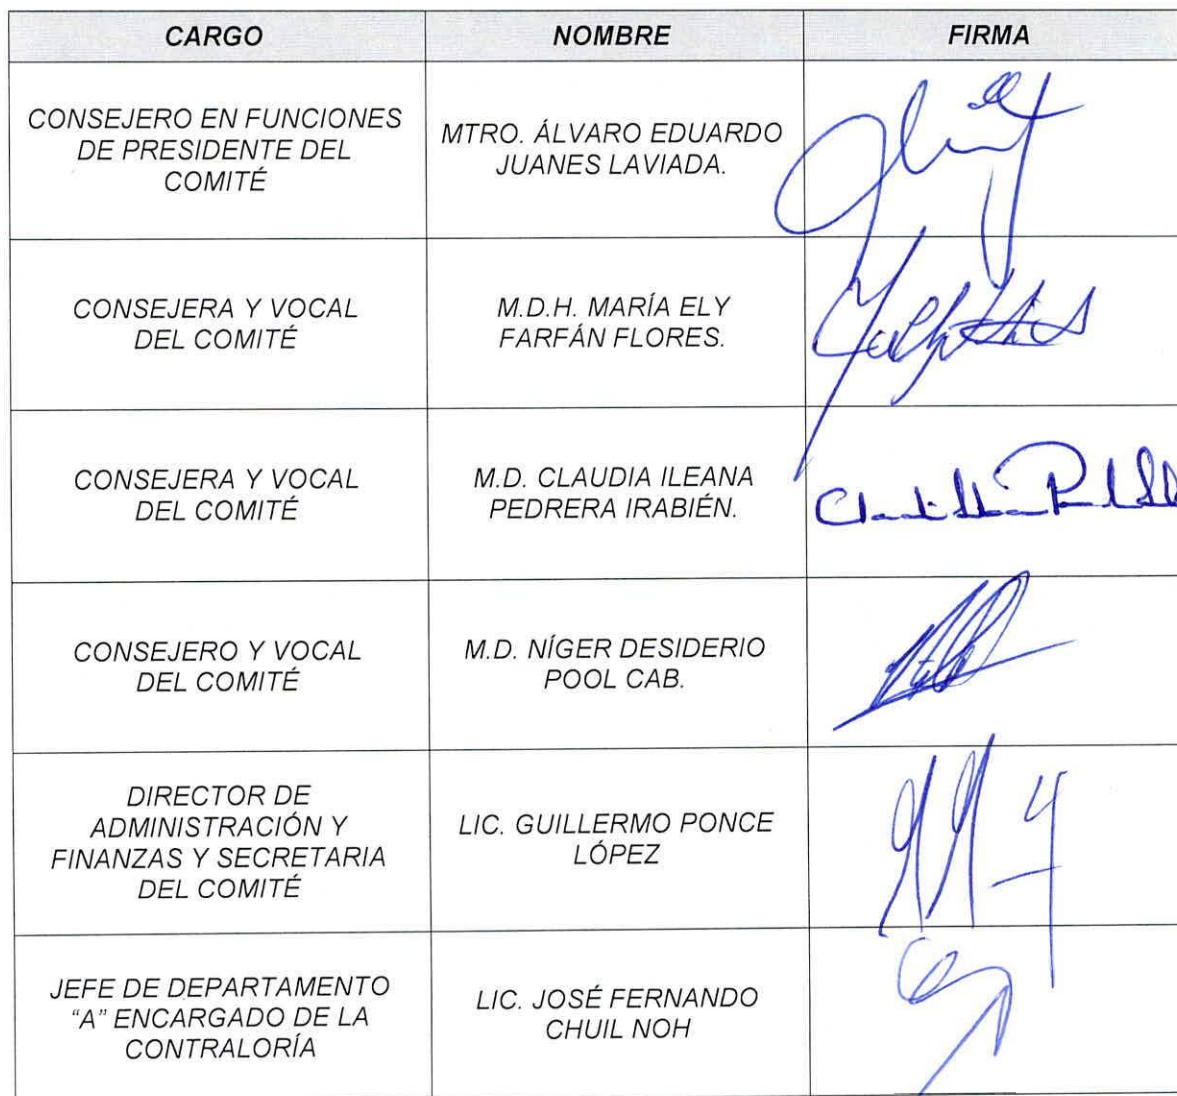 CARGO NOMBRE FIRMA
CONSEJERO EN FUNCIONES
DE PRESIDENTE DEL
COMITÉ
MTRO. ÁLVARO EDUARDO
JUANES LAVIADA.
CONSEJERA Y VOCAL
DEL COMITÉ
M.D.H. MARÍA ELY
FARFÁN FLORES.
CONSEJERA Y VOCAL
DEL COMITÉ
M.D. CLAUDIA ILEANA
PEDRERA IRABIÉN.
CONSEJERO Y VOCAL
DEL COMITÉ
M.D. NÍGER DESIDERIO
POOL CAB.
DIRECTOR DE
ADMINISTRACIÓN Y
FINANZAS Y SECRETARIA
DEL COMITÉ
LIC. GUILLERMO PONCE
LÓPEZ
JEFE DE DEPARTAMENTO
"A" ENCARGADO DE LA
CONTRALORÍA
LIC. JOSÉ FERNANDO
CHUIL NOH